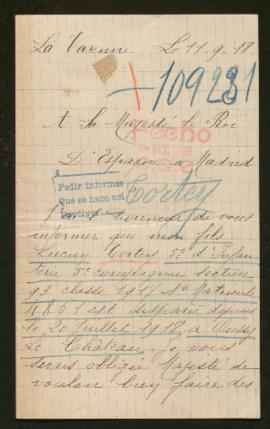 La Varenne Le 11-9-18
+109231
A Sa Majesté Le Roi
D'Espagne a Madrid
Pedir informes
Que se haga así
Devolver
Cortey
J'ai L'honneur de vous
informer que mon fils
Lucien Cortey 5e d'Infan
terie 5e compagnie secteur
93 classe 1917 No Matricule
4801 est disparu depuis
le 20 Juillet 1918, a
Le Chateau, je vous
serais obligée Majesté de
vouloir bien faire des